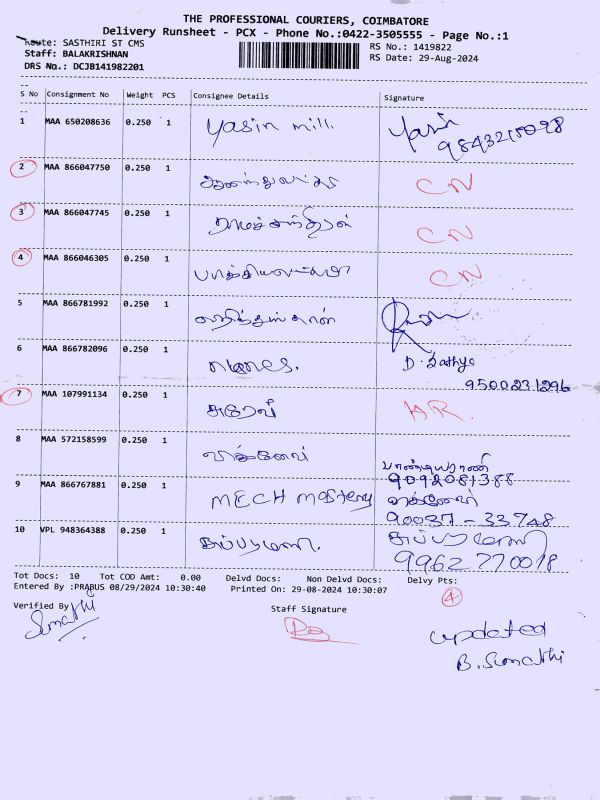 THE PROFESSIONAL COURIERS, COIMBATORE
Delivery Runsheet - PCX - Phone No.:0422-3505555 - Page No.:1
Route: SASTHIRI ST CMS
Staff: BALAKRISHNAN
DRS No.: DCJB141982201
RS No.: 1419822
RS Date: 29-Aug-2024
S No Consignment No Weight PCS Consignee Details Signature
1 MAA 650208636 0.250 1 Yasin mill.
9843215098
2 MAA 866047750 0.250 1 CN
3 MAA 866047745 0.250 1 CN
4 MAA 866046305 0.250 1 CN
5 MAA 866781992 0.250 1
6 MAA 866782096 0.250 1
D. Sathya
9500231296
7 MAA 107991134 0.250 1 AR.
8 MAA 572158599 0.250 1 விக்னேஷ்
பாண்டியராணி
9092081388
9 MAA 866767881 0.250 1 MECH Mastery
90037-33748
10 VPL 948364388 0.250 1 சுப்பரமணி. சுப்பரமணி
9962770018
Tot Docs: 10 Tot COD Amt: 0.00 Delvd Docs: Non Delvd Docs: Delvy Pts:
Entered By :PRABUS 08/29/2024 10:30:40 Printed On: 29-08-2024 10:30:07
4
Verified By Sumathi
Staff Signature
updated
B. Sumathi